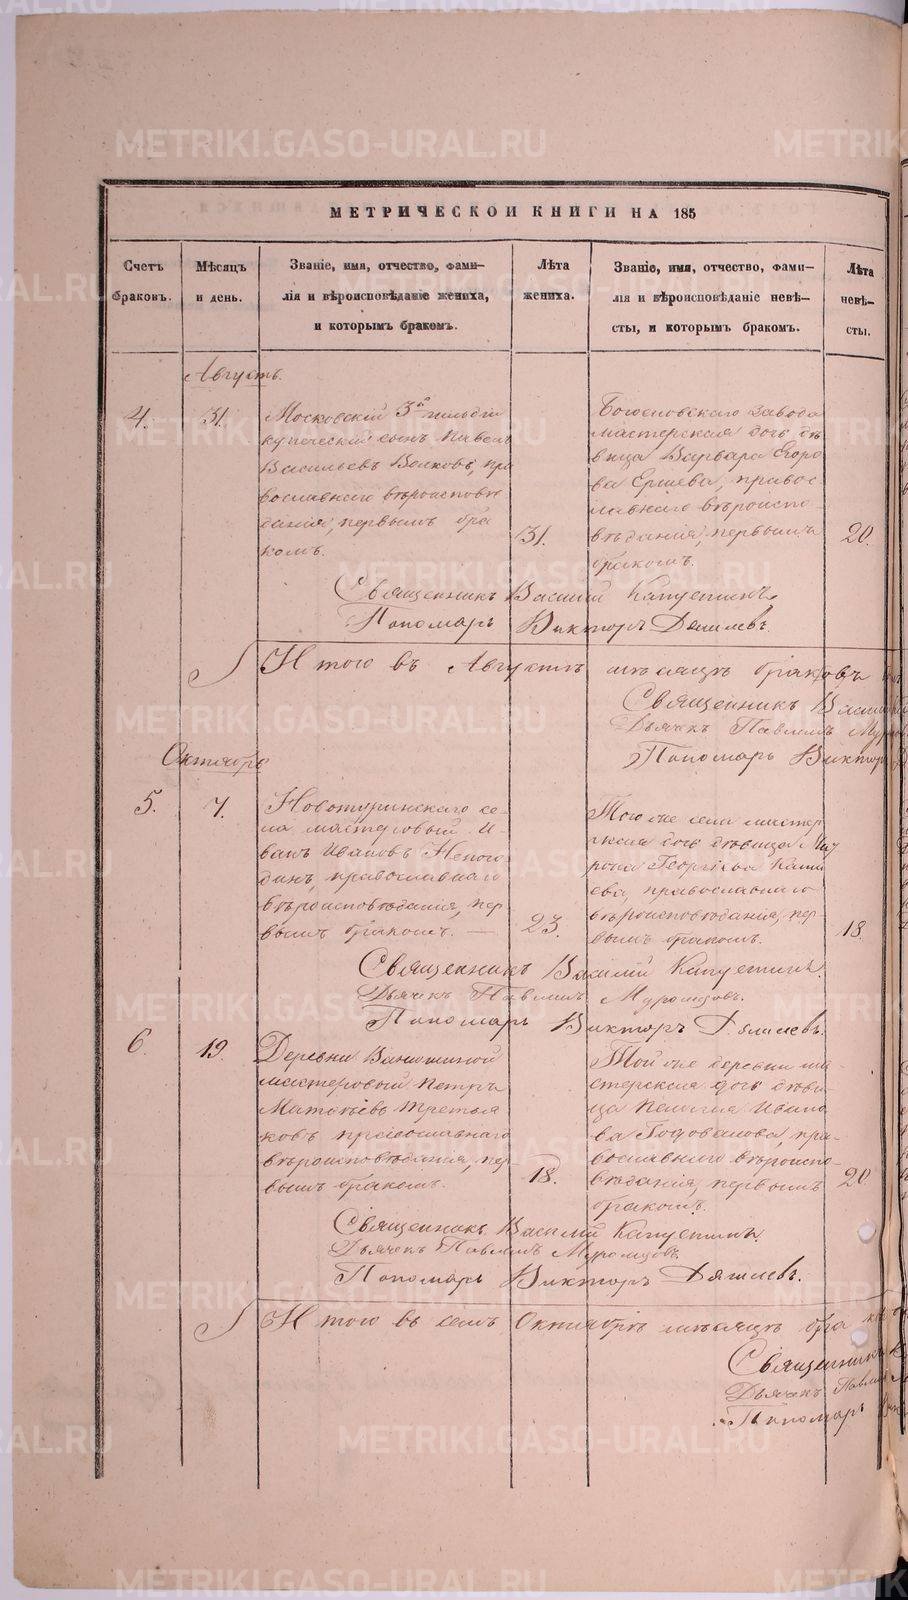 МЕТРИЧЕСКОЙ КНИГИ НА 185
Счетъ
браковъ.
Мѣсяцъ
и день.
Званіе, имя, отчество, фами-
лія и вѣроисповѣданіе жениха,
и которымъ бракомъ.
Лѣта
жениха.
Званіе, имя, отчество, фами-
лія и вѣроисповѣданіе невѣ-
сты, и которымъ бракомъ.
Лѣта
невѣ-
сты.
Августъ.
4.
31.
Московскій 3й гильдіи
купеческій сынъ Павелъ
Васильевъ Волковъ, пра
вославнаго вѣроисповѣ
данія, первымъ бра
комъ.
31.
Богословскаго завода
мастерская дочь дѣ
вица Варвара Егоро
ва Ершева, правос
лавнаго вѣроиспо
вѣданія, первымъ
бракомъ.
20.
Священникъ Василій Капустинъ
Пономарь Викторъ
Итого въ Августѣ мѣсяцѣ браковъ
Священникъ
Дьячекъ
Пономарь Викторъ
Октябрь
5.
7.
Новотуринскаго се-
ла мастеровый И-
ванъ Ивановъ Непого
динъ, православнаго
вѣроисповѣданія, пер
вымъ бракомъ.
23.
Того же села мастер
ская дочь дѣвица
Георгіева
ева, православнаго
вѣроисповѣданія, пер-
вымъ бракомъ.
18.
Священникъ Василій Капустинъ.
Дьячекъ Муромцовъ.
Пономарь Викторъ
6.
19.
Деревни
мастеровый Петръ
Матвѣевъ Третья
ковъ православнаго
вѣроисповѣданія, пер
вымъ бракомъ.
18.
Той же деревни ма-
стерская дочь дѣви
ца Пелагія Ивано
ва Годовалова, пра-
вославнаго вѣроиспо-
вѣданія, первымъ
бракомъ.
20.
Священникъ Василій Капустинъ.
Дьячекъ Муромцовъ
Пономарь Викторъ
Итого въ семъ Октябрѣ мѣсяцѣ бра
Священникъ
Дьячекъ
Пономарь
METRIKI.GASO-URAL.RU